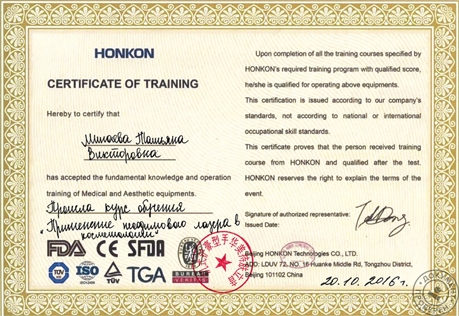 HONKON
CERTIFICATE OF TRAINING
Hereby to certify that
Минаева Татьяна
Викторовна
has accepted the fundamental knowledge and operation
training of Medical and Aesthetic equipments.
Прошла курс обучения
"Применение неодимового лазера в
косметологии"
FDA CE SFDA
TÜV ISO TÜV TGA
BUREAU
VERITAS
Upon completion of all the training courses specified by
HONKON's required training program with qualified score,
he/she is qualified for operating above equipments.
This certification is issued according to our company's
standards, not according to national or international
occupational skill standards.
This certificate proves that the person received training
course from HONKON and qualified after the test.
HONKON reserves the right to explain the terms of the
event.
Signature of authorized representative:
Issued Date:
Beijing HONKON Technologies CO., LTD.
ADD: LDUV 72, NO. 16 Huanke Middle Rd, Tongzhou District,
Beijing 101102 China
20.10.2016г.